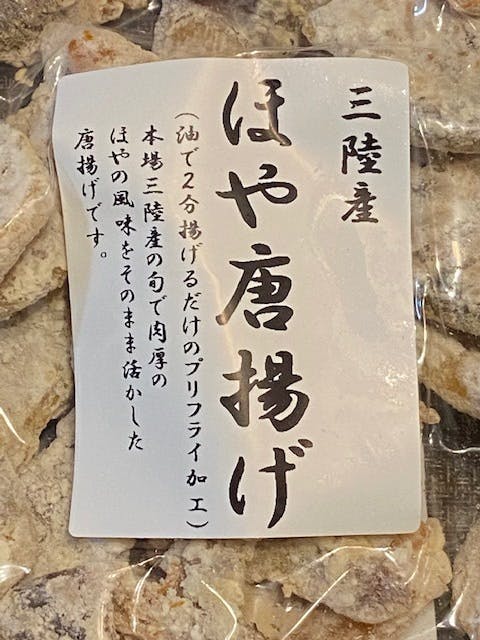 三陸産
ほや唐揚げ
(油で2分揚げるだけのプリフライ加工)
本場三陸産の旬で肉厚の
ほやの風味をそのまま活かした
唐揚げです。